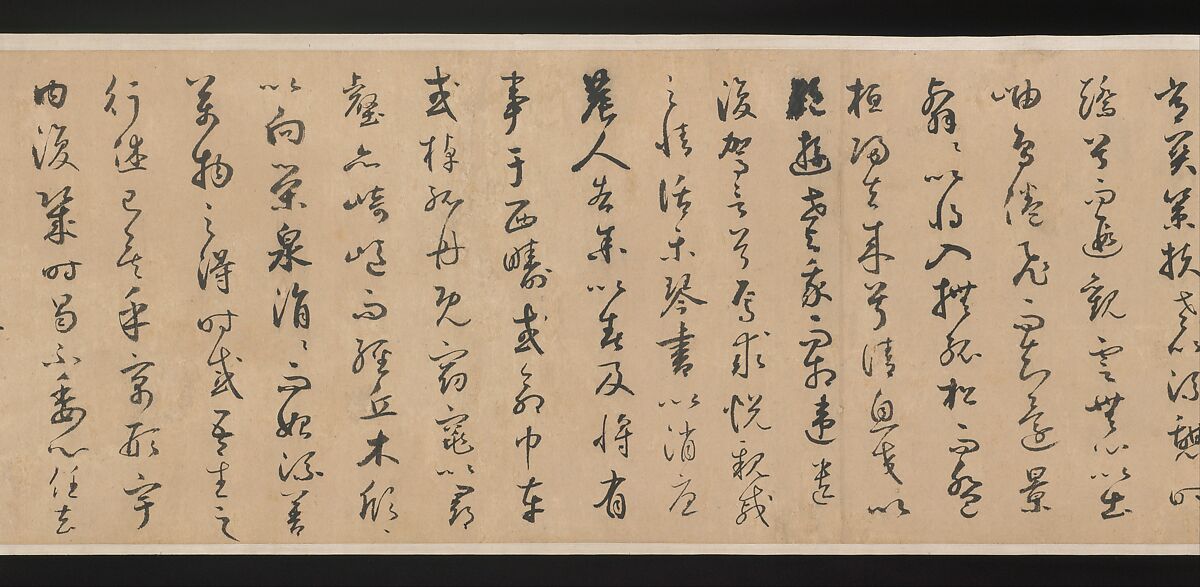 常關策扶老以流憩時
矯首而遐觀雲無心以出
岫鳥倦飛而知還景
翳〻以將入撫孤松而盤
桓歸去來兮請息交以
絕遊世與我而相違遺
復駕言兮焉求悅親戚
之情話樂琴書以消憂
農人告余以春及將有
事于西疇或命巾車
或棹孤舟既窈窕以尋
壑亦崎嶇而經丘木欣〻
以向榮泉涓〻而始流善
萬物之得時感吾生之
行休已矣乎寓形宇
內復幾時曷不委心任去